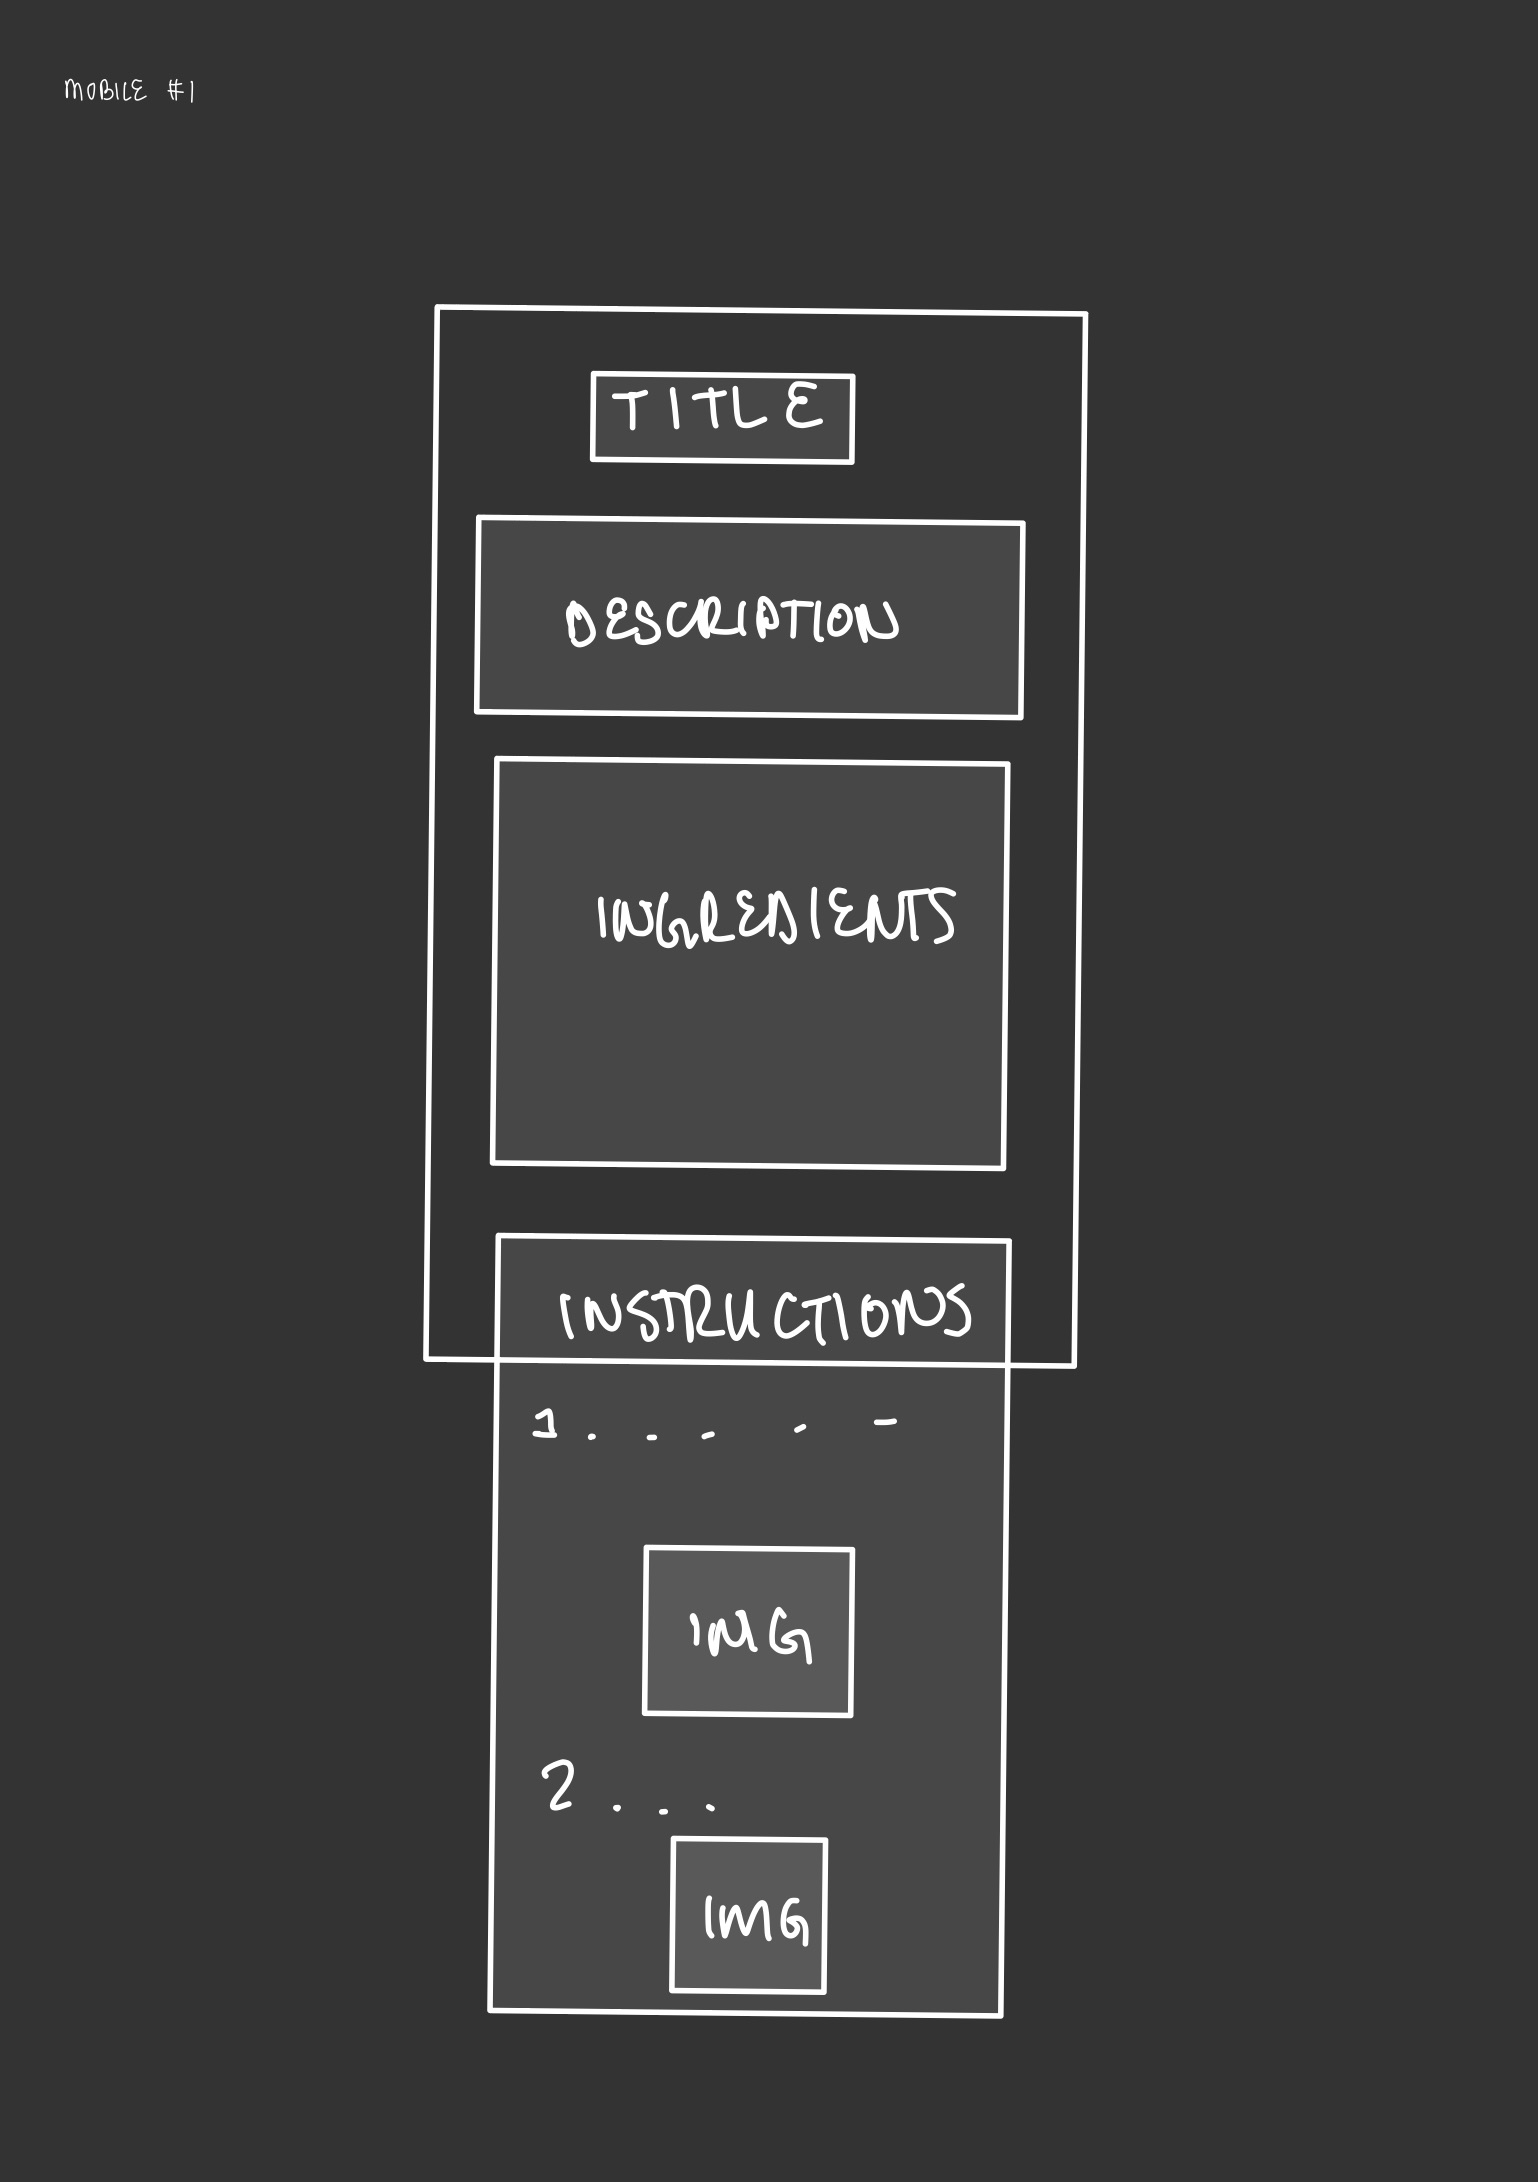 MOBILE #1
TITLE
DESCRIPTION
INGREDIENTS
INSTRUCTIONS
1. . . . -
IMG
2 . . .
IMG